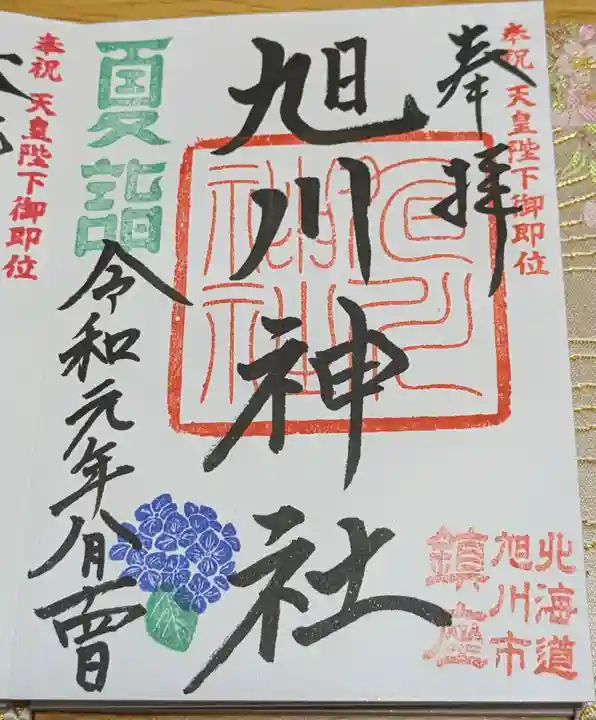 奉拝
奉祝 天皇陛下御即位
旭川神社
旭川神社
北海道
旭川市
鎮座
夏詣
令和元年八月十四日
奉祝 天皇陛下御即位